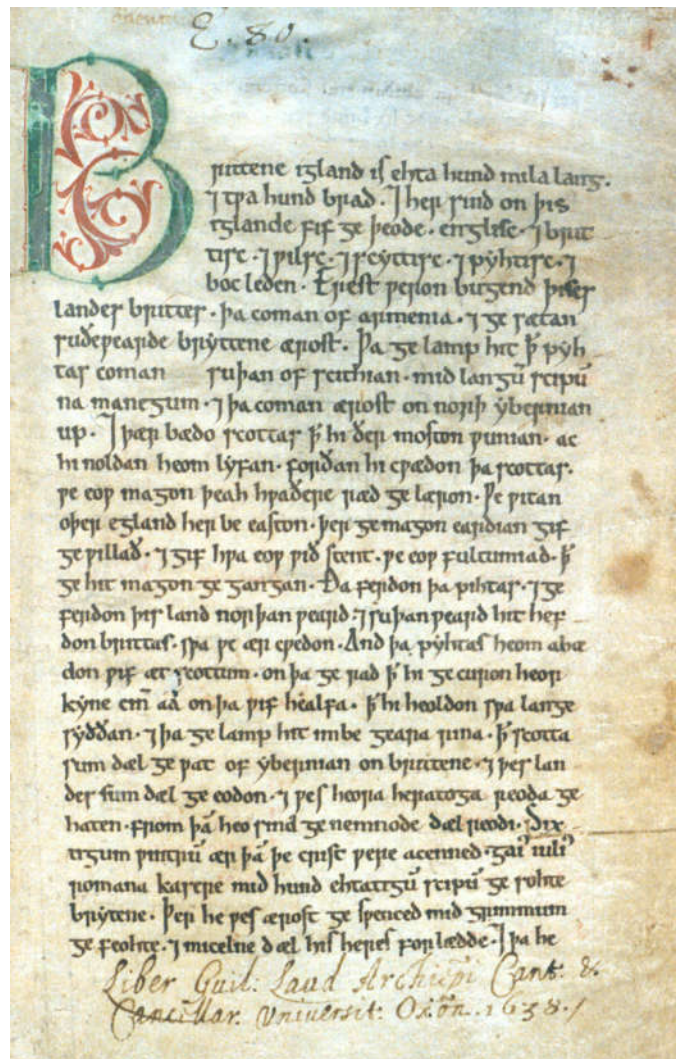 E. 80.
Brittene igland is ehta hund mila lang.
⁊ tƿa hund brad. ⁊ her sind on þis
iglande fif ge þeode. englisc. ⁊ brit
tisc. ⁊ ƿilsc. ⁊ scyttisc. ⁊ pyhtisc. ⁊
boc leden. Erest ƿeron bugend þises
landes brittes. þa coman of armenia. ⁊ ge sætan
suðeƿearde bryttene ærost. Þa ge lamp hit ꝥ pyh
tas coman suþan of scithian. mid langū scipū
na manegum. ⁊ þa coman ærost on norþ ybernian
up. ⁊ þær bædo scottas ꝥ hi ðer moston ƿunian. ac
hi noldan heom lyfan. forðan hi cƿædon þa scottas.
ƿe eoƿ magon þeah hƿaðere ræd ge læron. Ƿe ƿitan
oþer egland her be easton. þer ge magon eardian gif
ge ƿillað. ⁊ gif hƿa eoƿ ƿið stent. ƿe eoƿ fultumiad. ꝥ
ge hit magon ge gangan. Ða ferdon þa pihtas. ⁊ ge
ferdon þis land norþan ƿeard. ⁊ suþan ƿeard hit hef
don brittas. sƿa ƿe ær cƿedon. And þa pyhtas heom abæ
don ƿif æt scottum. on þa ge rad ꝥ hi ge curon heor
kyne cīn aá on þa ƿif healfa. ꝥ hi heoldon sƿa lange
syððan. ⁊ þa ge lamp hit imbe geara rina. ꝥ scotta
sum dæl ge ƿat of ybernian on brittene. ⁊ þes lan
des sum dæl ge eodon. ⁊ ƿes heora heratoga reoda ge
haten. from þā heo sind ge nemnode dæl reodi. Six
tigum ƿintrū ær þā þe crist ƿere acenned. gai' iuli'
romana kasere mid hund ehtatigū scipū ge sohte
brytene. Þer he ƿes ærost ge sƿenced mid grimmum
ge feohte. ⁊ micelne dæl his heres forlædde. ⁊ þa he
Liber Guil: Laud Archiep̄i Cant: &
Cancillar. Vniuersit: Oxōn. 1638./